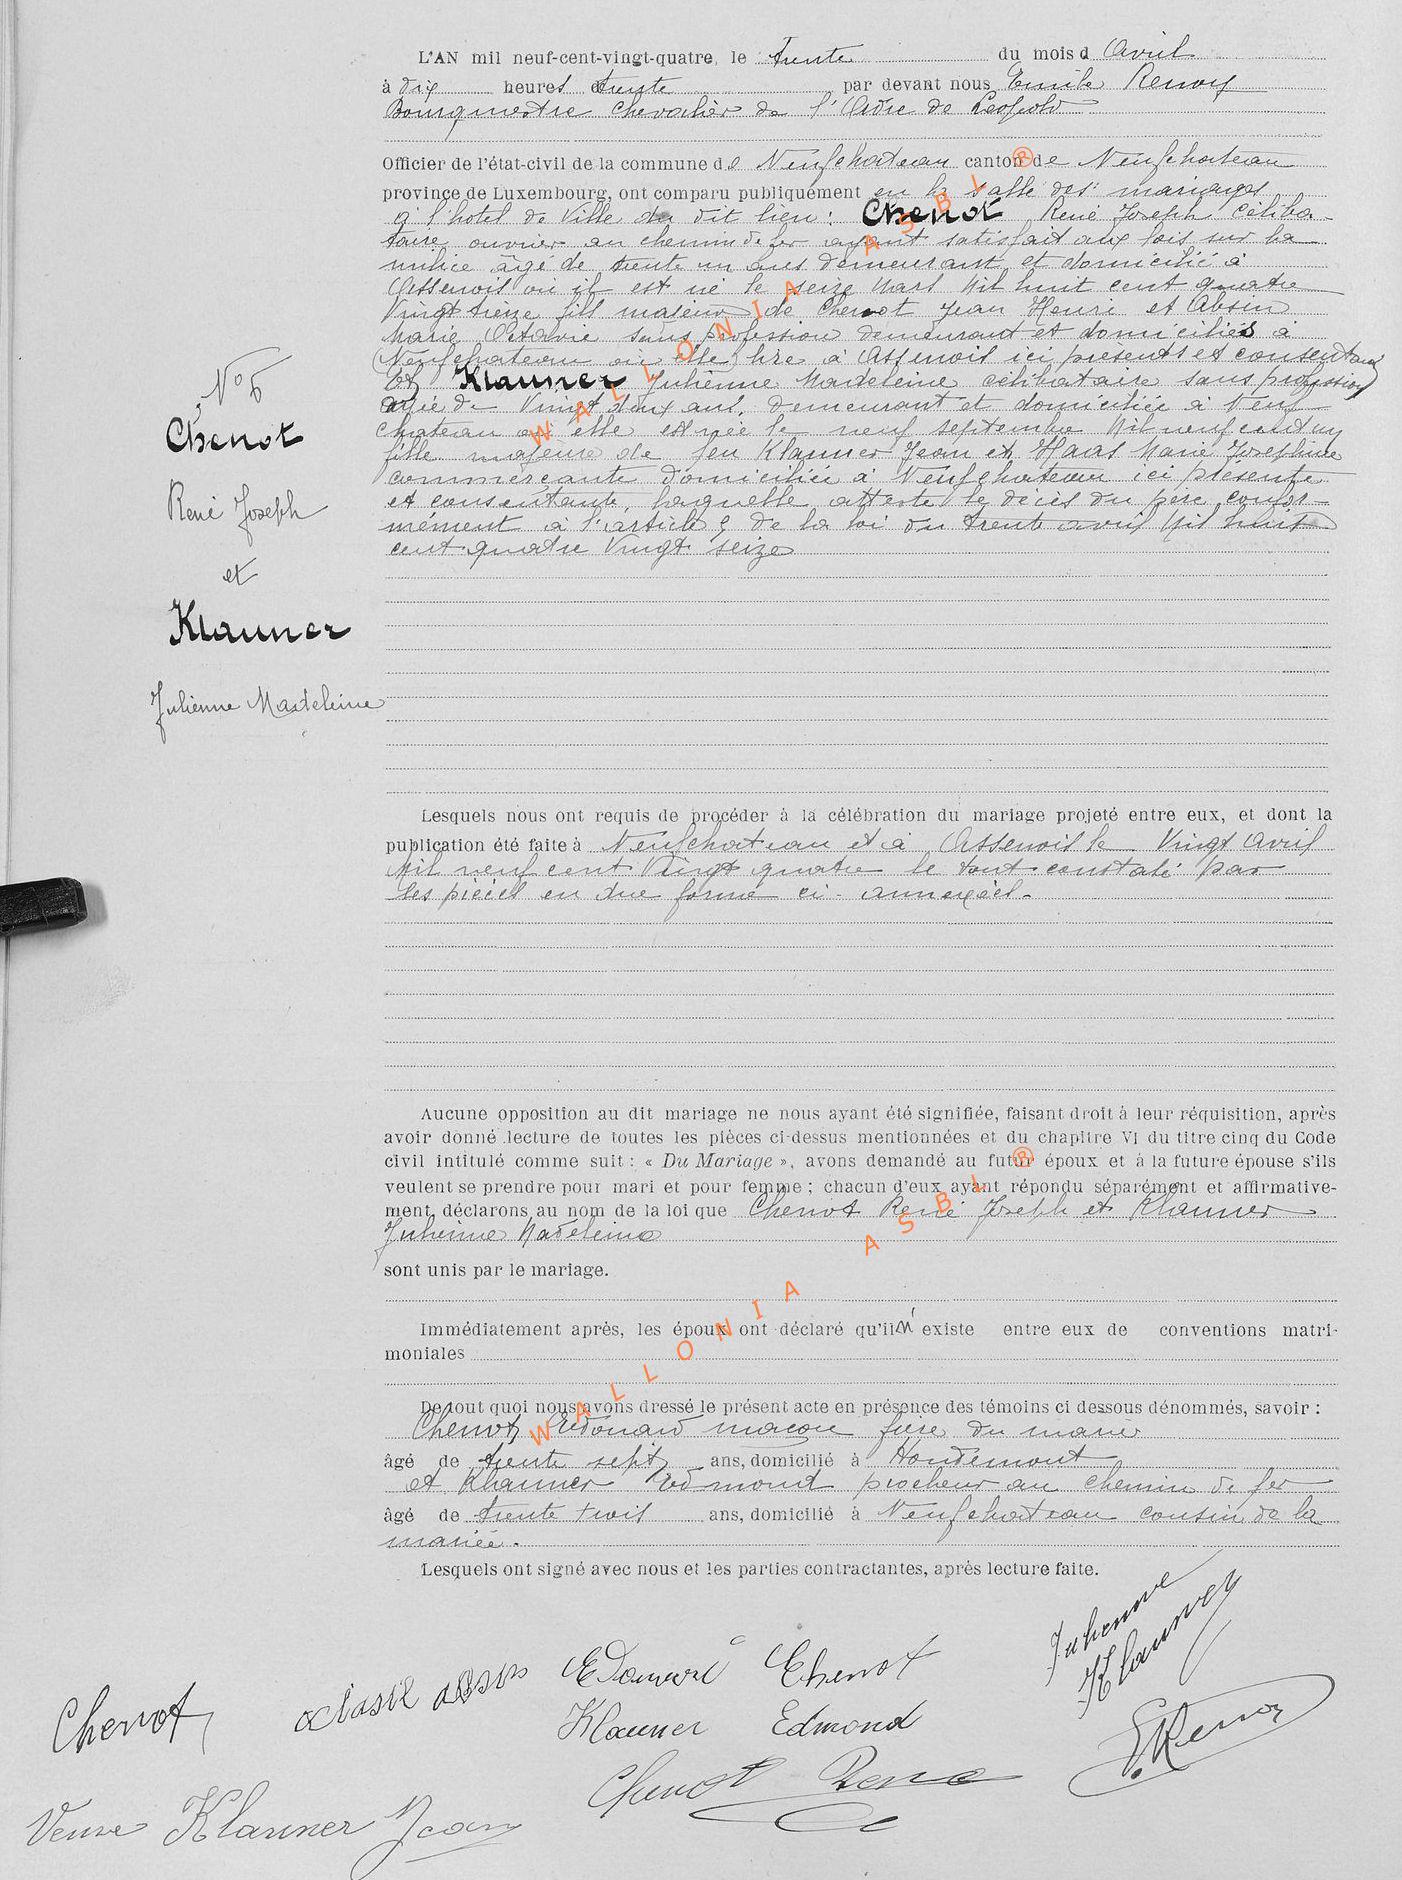 L'AN mil neuf-cent-vingt-quatre, le trente du mois d Avril
à dix heures et trente par devant nous Emile Renoy
Bourgmestre Chevalier de l'Ordre de Léopold
Officier de l'état-civil de la commune de Neufchateau canton de Neufchateau
province de Luxembourg, ont comparu publiquement en la salle des mariages
à l'hotel de Ville du dit lieu : Chenot René Joseph céliba-
taire ouvrier au chemin de fer ayant satisfait aux lois sur la
milice âgé de trente un ans demeurant et domicilié à
Assenois où il est né le seize Mars Mil huit cent quatre
Vingt treize fils majeur de Chenot Jean Henri et Absin
Marie Octavie sans profession demeurant et domiciliés à
(Neufchateau où elle) lire à Assenois ici présents et consentant
Et Klauner Julienne Madeleine célibataire sans profession
âgée de Vingt deux ans, demeurant et domiciliée à Neuf-
chateau où elle est née le neuf septembre Mil neuf cent un
fille majeure de feu Klauner Jean et Haas Marie Joséphine
commerçante domiciliée à Neufchateau ici présente
et consentante, laquelle atteste le décès du père confor-
mément à l'article 9 de la loi du trente avril Mil huit
cent quatre Vingt seize
N° 6
Chenot
René Joseph
et
Klauner
Julienne Madeleine
Lesquels nous ont requis de procéder à la célébration du mariage projeté entre eux, et dont la
publication été faite à Neufchateau et à Assenois le Vingt Avril
Mil neuf cent Vingt quatre le tout constaté par
les pièces en due forme ci-annexées.
Aucune opposition au dit mariage ne nous ayant été signifiée, faisant droit à leur réquisition, après
avoir donné lecture de toutes les pièces ci-dessus mentionnées et du chapitre VI du titre cinq du Code
civil intitulé comme suit : « Du Mariage », avons demandé au futur époux et à la future épouse s'ils
veulent se prendre pour mari et pour femme ; chacun d'eux ayant répondu séparément et affirmative-
ment, déclarons au nom de la loi que Chenot René Joseph et Klauner
Julienne Madeleine
sont unis par le mariage.
Immédiatement après, les époux ont déclaré qu'il n'existe entre eux de conventions matri-
moniales
De tout quoi nous avons dressé le présent acte en présence des témoins ci dessous dénommés, savoir :
Chenot Edouard maçon frère du marié
âgé de trente sept ans, domicilié à Houdemont
et Klauner Edmont piocheur au chemin de fer
âgé de trente trois ans, domicilié à Neufchateau cousin de la
mariée.
Lesquels ont signé avec nous et les parties contractantes, après lecture faite.
Julienne Klauner
Edouard Chenot
Chenot
Klauner Edmond
E. Renoy
Chenot René
Veuve Klauner Jean
WALLONIA ASBL ®
WALLONIA ASBL ®